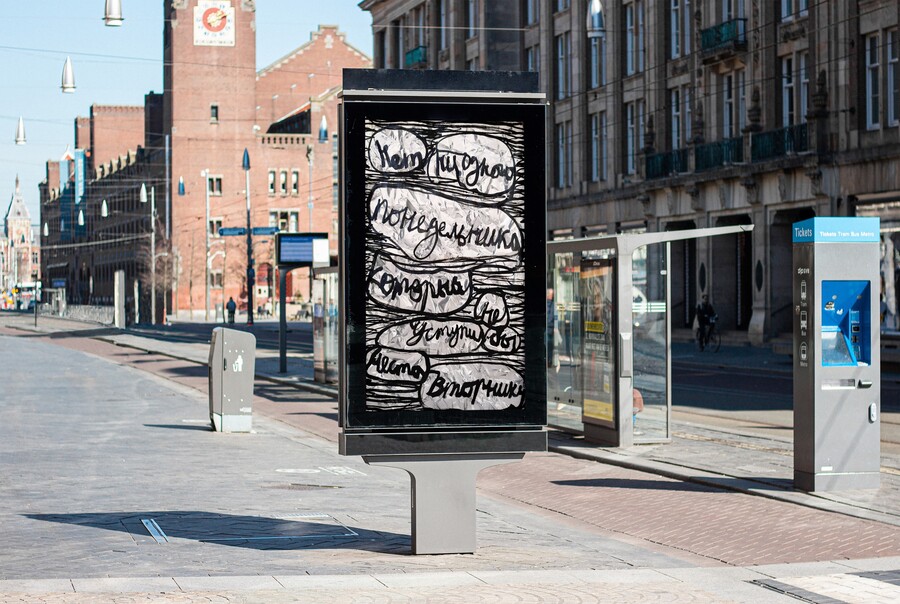 Нет ни одного
понедельника
который не
Уступил бы
место Вторнику
Tickets Tickets Tram Bus Metro